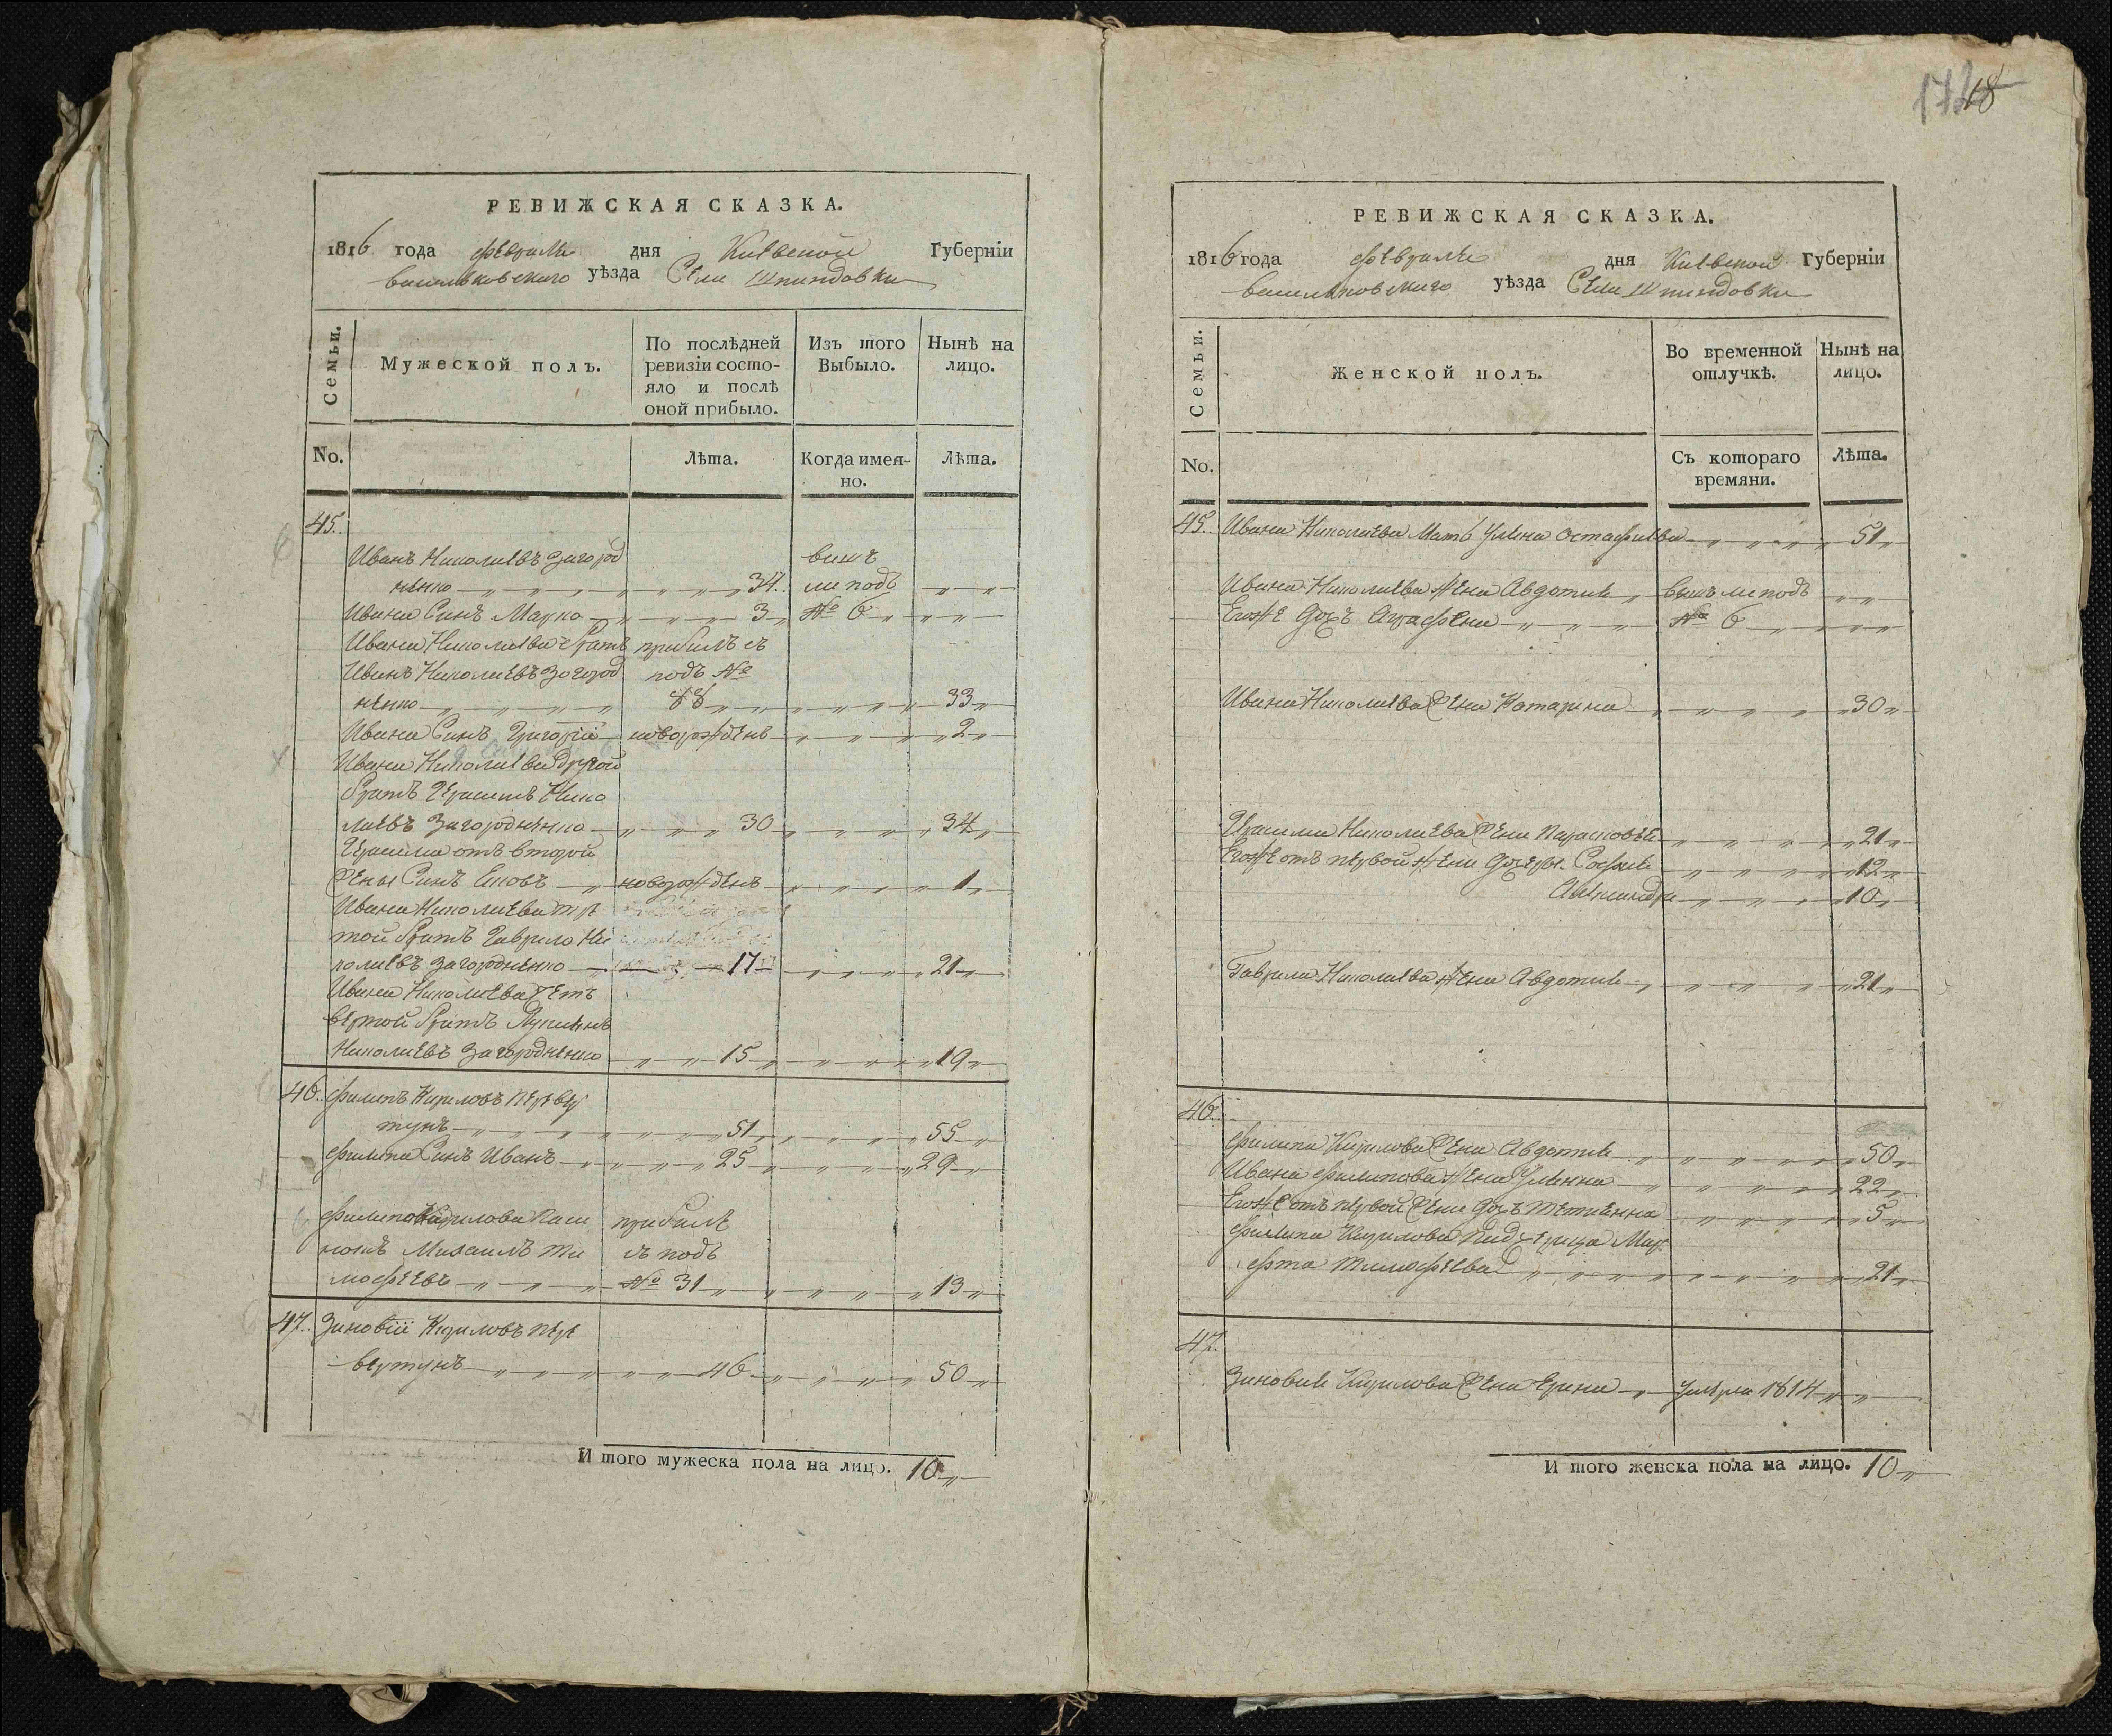 РЕВИЖСКАЯ СКАЗКА.
1816 года февраля дня Киевской Губерніи
васильковского уѣзда Села Шпиндовки
Семьи.
Мужеской полъ.
По послѣдней ревизіи состояло и послѣ оной прибыло.
Изъ того Выбыло.
Нынѣ на лицо.
No.
Лѣта.
Когда именно.
Лѣта.
45.
Иванъ Николаевъ Загород выш
ненко 34. ли подъ
Ивана Синъ Марко 3 № 6
Ивана Николаева братъ прибилъ съ
Иванъ Николаевъ Загород подъ №
ненко 88 33
Ивана Синъ Григорій новорожденъ 2
Ивана Николаева другой
братъ Герасимъ Нико
лаевъ Загородненко 30 34
Герасима отъ второй
Жены Синъ Яковъ новорожденъ 1
Ивана Николаева тре
той братъ Гаврило Ни
колаевъ Загородненко 17 21
Ивана Николаева Чет
вертой братъ
Николаевъ Загородненко 15 19
46. Филипъ Кириловъ Перевер
тунъ 51 55
Филипа Синъ Иванъ 25 29
Филипа Кирилова Паси прибилъ
нокъ Михаилъ Ти съ подъ
мофеевъ № 31 13
47. Зиновій Кириловъ Пере
вертунъ 46 50
И того мужеска пола на лицо. 10
172 18
РЕВИЖСКАЯ СКАЗКА.
1816 года февраля дня Киевской Губерніи
васильковского уѣзда Села Шпиндовки
Семьи.
Женской полъ.
Во временной отлучкѣ.
Нынѣ на лицо.
No.
Съ котораго времяни.
Лѣта.
45. Ивана Николаева Мать Уляна Остафиева 51
Ивана Николаева Жена Авдотия вышли подъ
Егоже дочъ Аграфена № 6
Ивана Николаева Жена Катарина 30
Герасима Николаева Жена Парасковѣя 21
Егоже отъ первой Жены дочери София 12
Александра 10
Гаврила Николаева Жена Авдотия 21
46.
Филипа Кирилова Жена Авдотия 50
Ивана Филипова Жена Улянна 22
Егоже отъ первой Жены дочъ Тетиянна 5
Филипа Кирилова Падчерица Мар
фта Тимофеева 21
47.
Зиновия Кирилова Жена Ерина умерла 1814
И того женска пола на лицо. 10